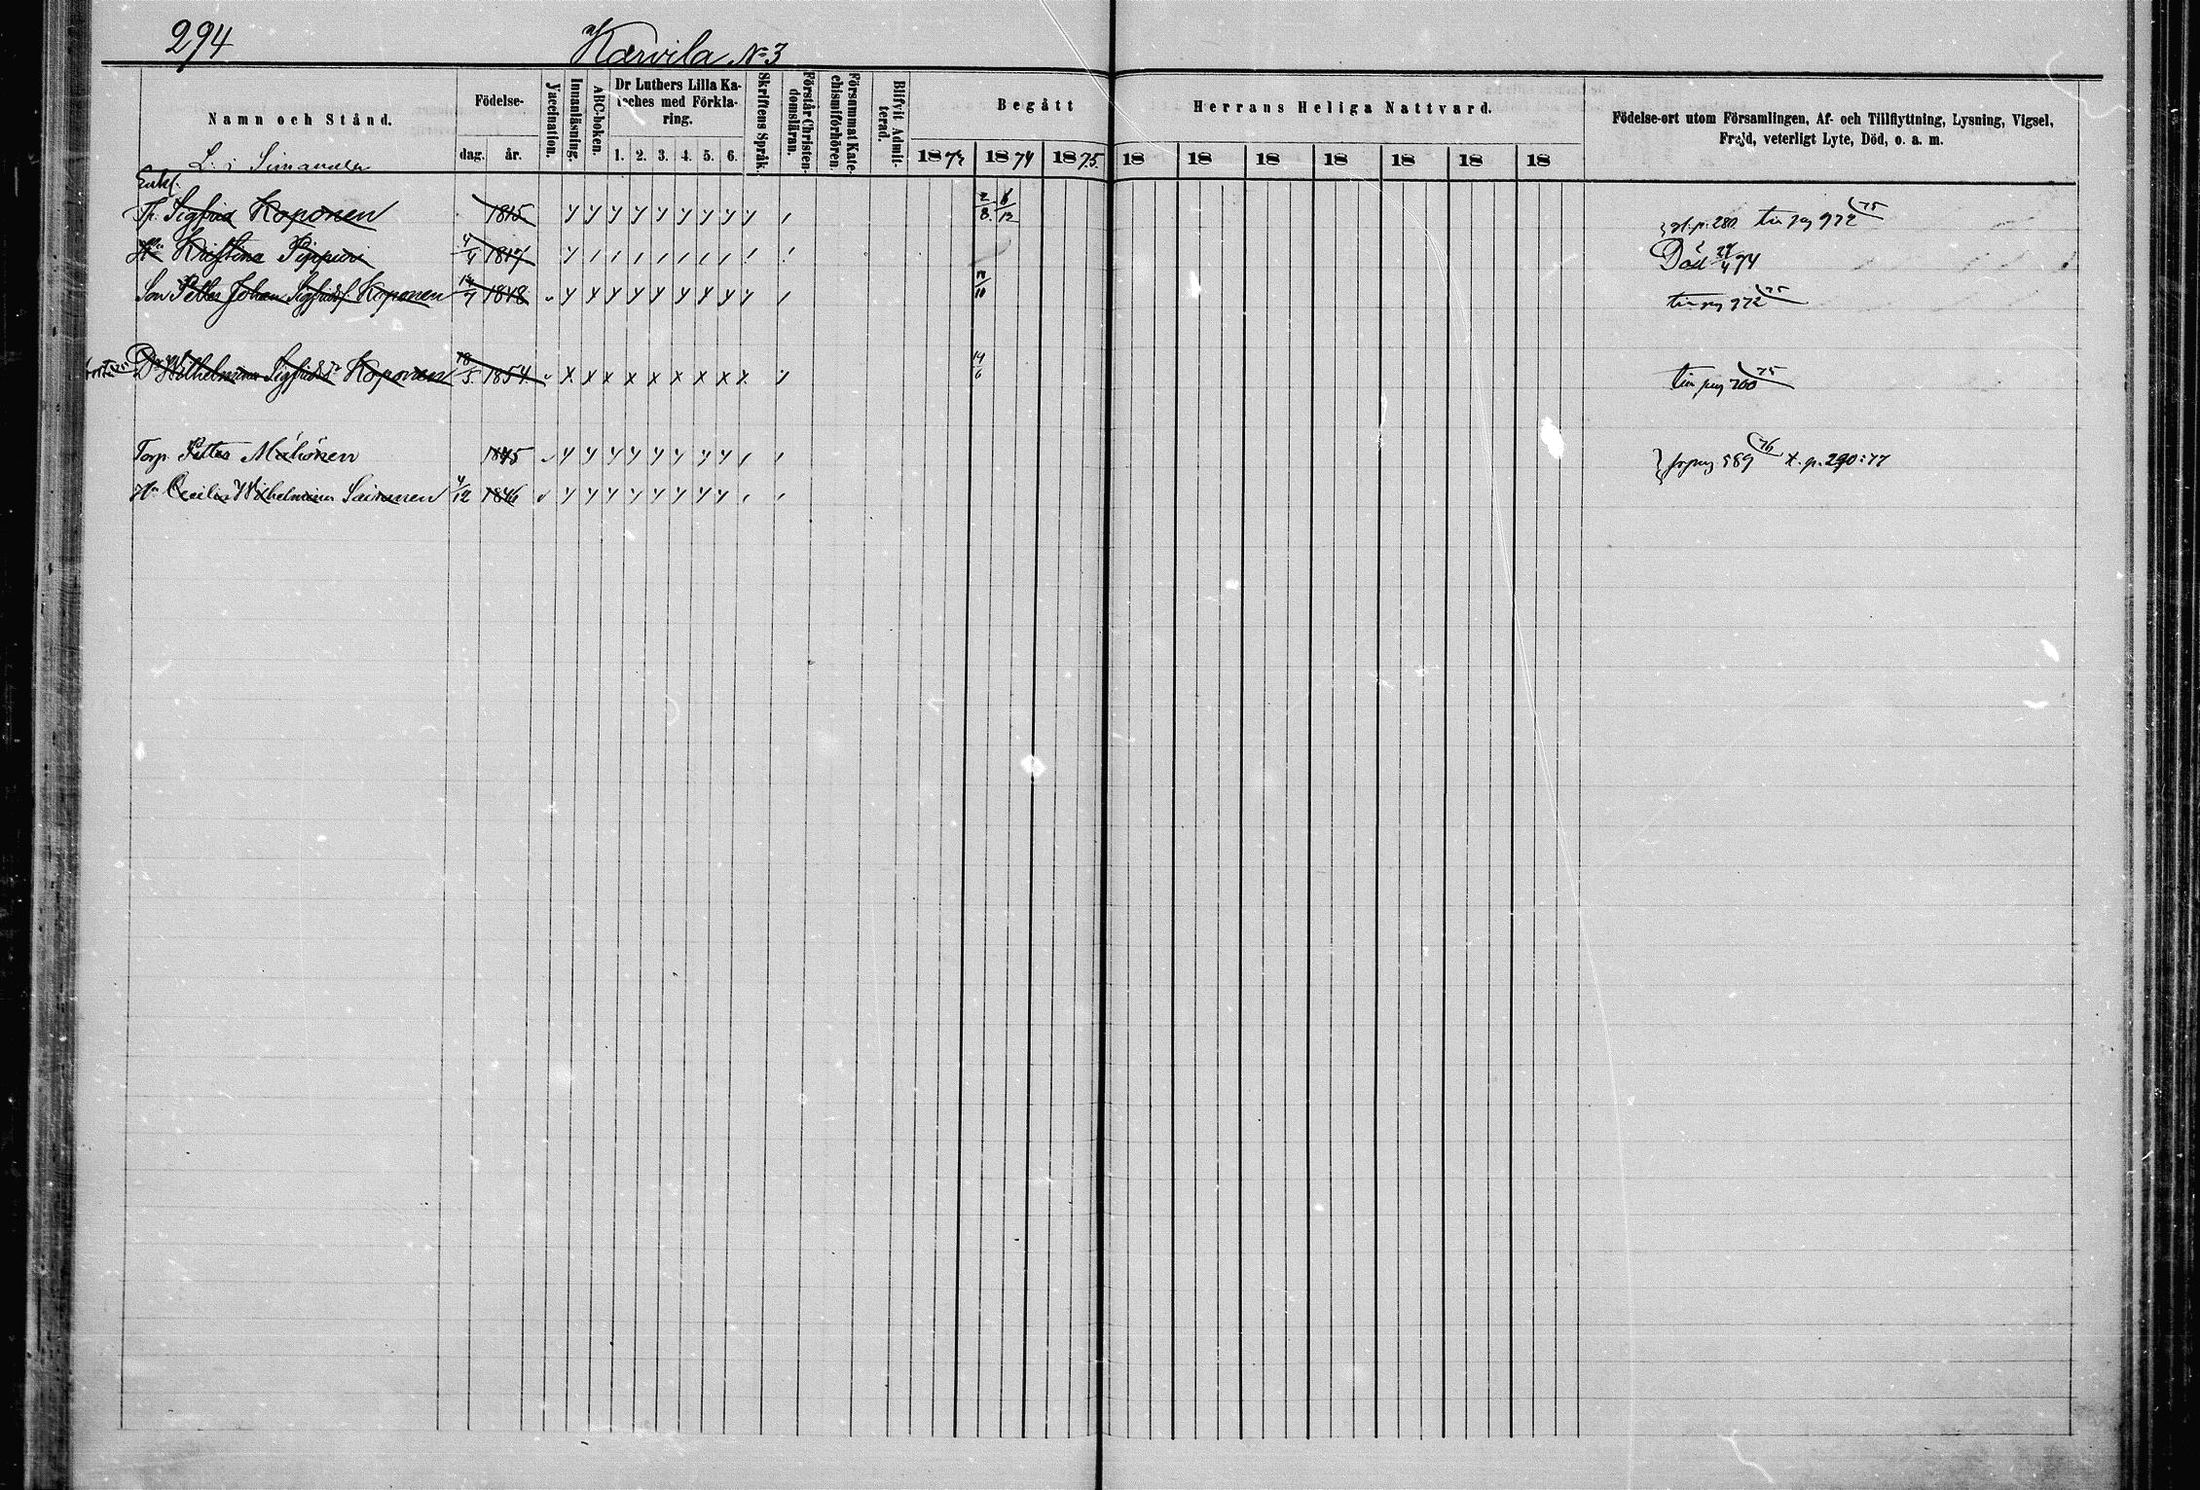 294
Karvila № 3
Namn och Stånd.
Födelse-
dag. år.
Vaccination.
Innanläsning.
ABC-boken.
Dr Luthers Lilla Ka-
teches med Förkla-
ring.
1. 2. 3. 4. 5. 6.
Skriftens Språk.
Förstår Christen-
domsläran.
Försummat Kate-
chismiförhören.
Blifvit Admit-
terad.
Begått Herrans Heliga Nattvard.
1873 1874 1875 18 18 18 18 18 18 18
Födelse-ort utom Församlingen, Af- och Tillflyttning, Lysning, Vigsel,
Frejd, veterligt Lyte, Död, o. a. m.
Enkl.
Tp. Sigfrid Koponen 1815 2/8 6/12 p. 280 tin pag 972 75
Hu Kristina Pippuri 4/4 1817 Död 27/4 74
Son Petter Johan Sigfridsf Koponen 1848 tin pag 972 75
Dr Wilhelmina Sigfridsdr Koponen 18/5 1854 14/6 tin pag 260 75
Torp. Petter Mähönen 1845 pag 589 76 t. p. 290:77
Hu Cecilia Wilhelmina Saininen 4/12 1846